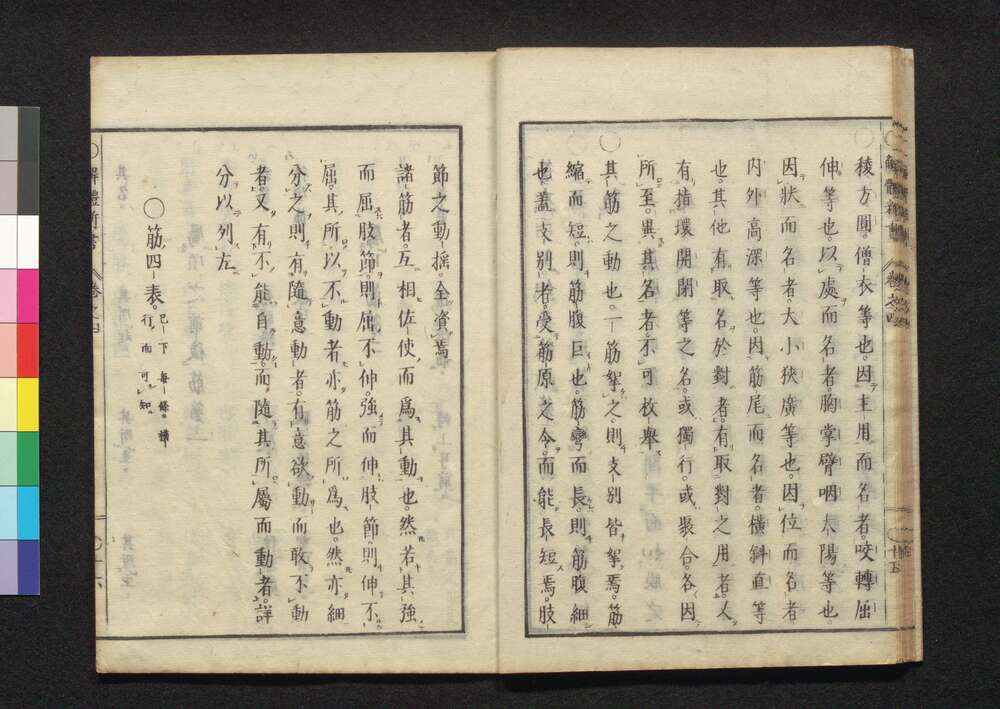 稜方圓僧衣等也。因主用而名者。咬轉屈
伸等也。以處而名者。胸掌臂咽太陽等也。
因狀而名者。大小狹廣等也。因位而名者
内外高深等也。因筋尾而名者。橫斜直等
也。其他有取名於對者。有取對之用者。又
有揸環開閉等之名。或獨行。或聚合。各因
所至。異其名者。不可枚舉。
其筋之動也。一筋攣之。則支別皆攣焉。筋
縮而短。則筋腹巨也。筋彎而長。則筋腹細
也。蓋支別者。受筋原之令。而能長短焉。肢
節之動搖。全資焉
諸筋者。互相佐使。而爲其動也。然若其強
而屈肢節。則屈不伸。強而伸肢節。則伸不
屈。其所以不動者。亦筋之所爲也。然亦細
分之。則有隨意動者。有意欲動而敢不動
者。又有不能自動。而隨其所屬而動者。詳
分以列左
○筋四表。已下每條。橫行而可知
解體新書 卷之四 ○十六